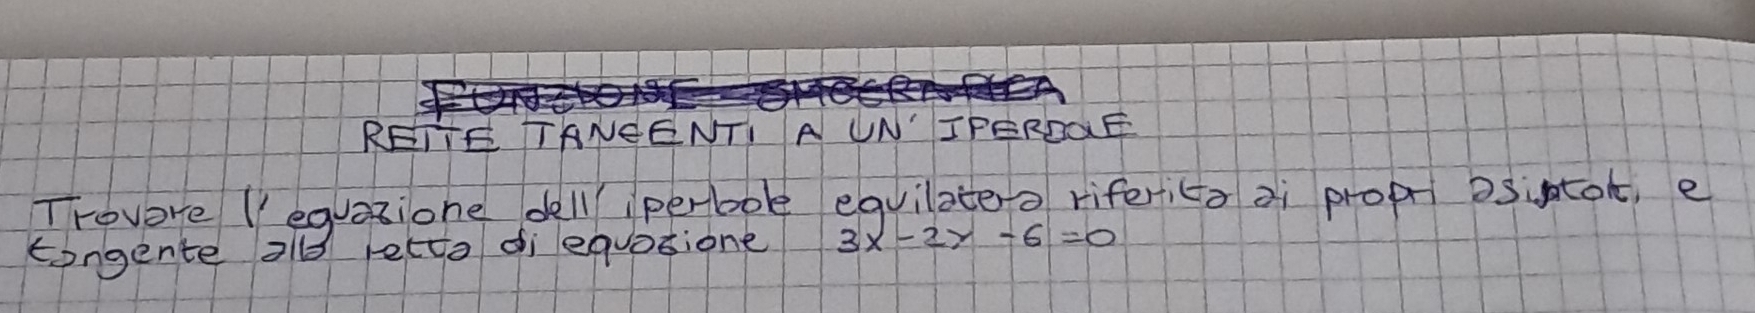 RETTE TANGENTI A UN' IPERBOLE
Trovare l'equazione dell'iperbole equilatera riferita ai propri asintoti, e
tangente alla retta di equazione 3x-2y-6=0